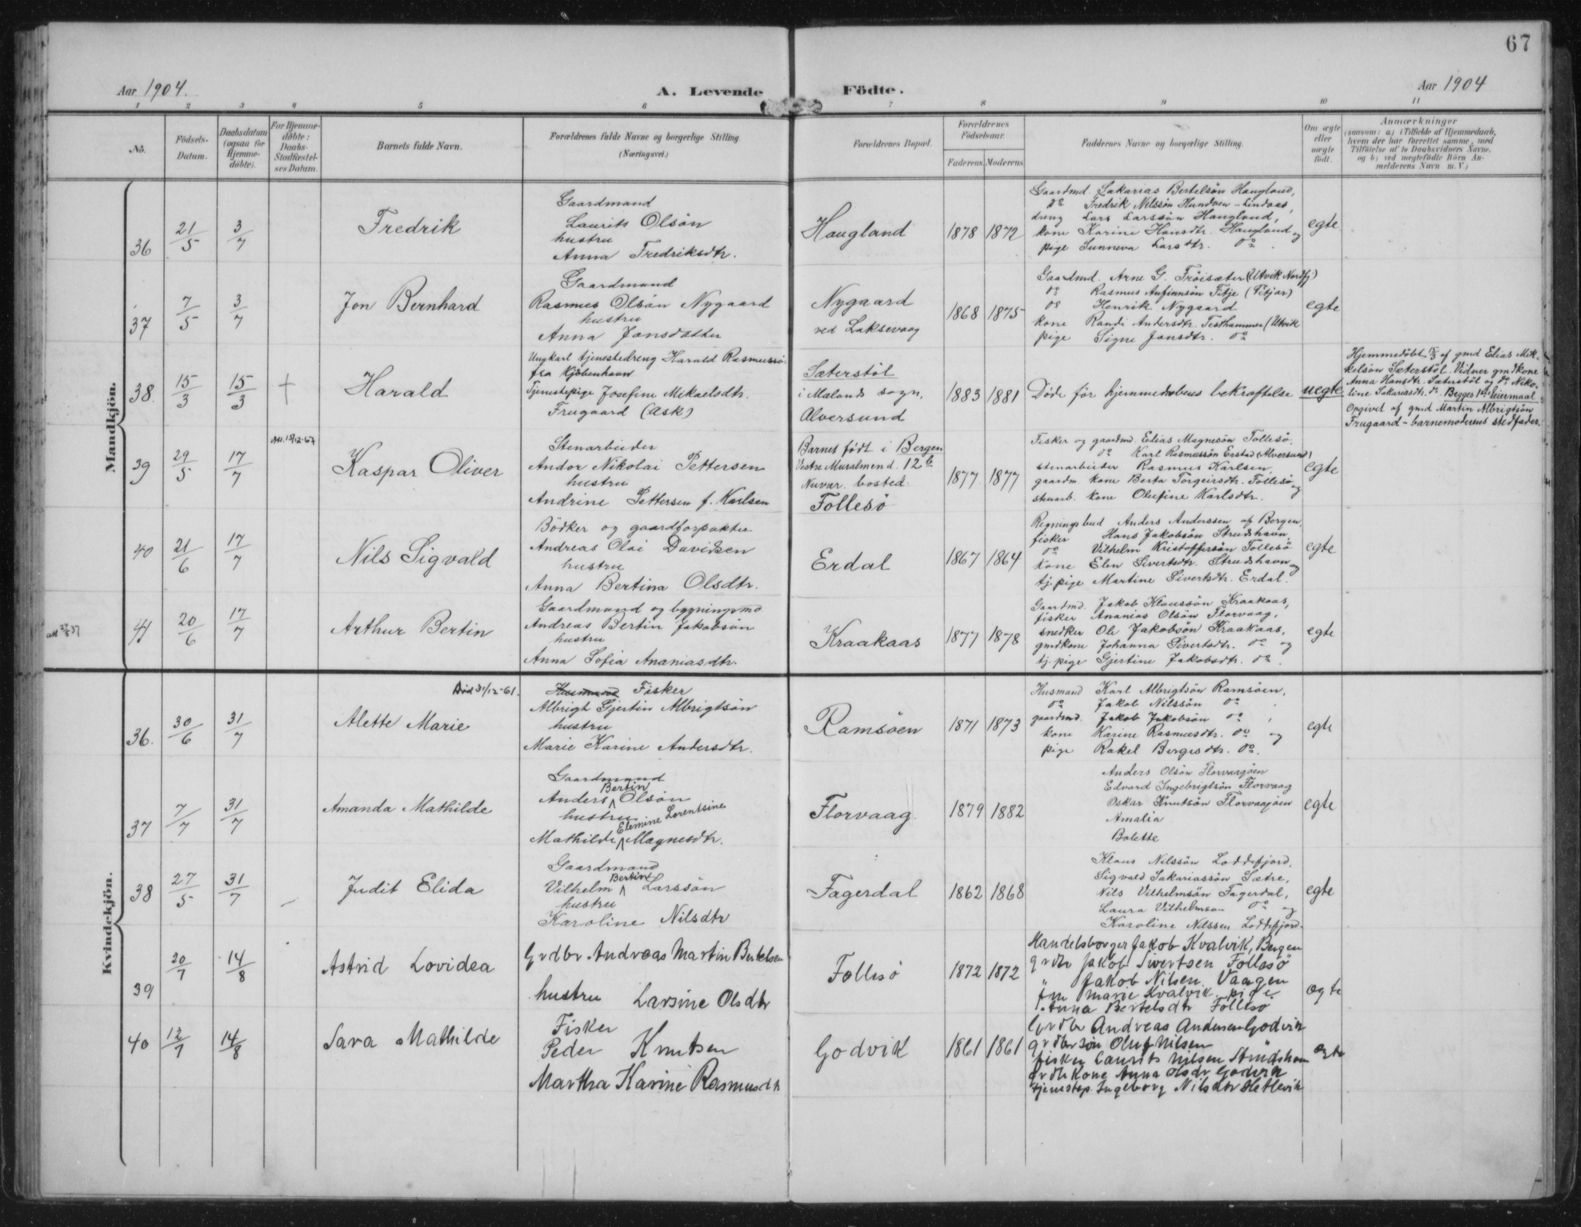 67
Aar 1904.
A. Levende
Födte.
Aar 1904
1 2 3 4 5 6 7 8 9 10 11
No.
Födsels-
Datum.
Daabsdatum
(ogsaa for
Hjemme-
döbte).
For Hjemme-
döbte:
Daabs-
Stadfæstel-
ses Datum.
Barnets fulde Navn.
Forældrenes fulde Navne og borgerlige Stilling
(Næringsvei.)
Forældrenes Bopæl.
Forældrenes
Födselsaar.
Faderens. Moderens.
Faddernes Navne og borgerlige Stilling.
Om ægte
eller
uægte
född.
Anmærkninger
(saasom: a) i Tilfælde af Hjemmedaab,
hvem der har forrettet samme, med
Tilföielse af to Daabsvidners Navne,
og b) ved uægtefödte Börn An-
melderens Navn m. V.)
Mandkjön.
36
21/5
3/7
Fredrik
Gaardmand
Laurits Olsön
hustru
Anna Fredriksdtr.
Haugland
1878 1872
Gaardmd. Sakarias Bertelsön Haugland,
do Fredrik Nilssön Hundven - Lindaas,
dreng Lars Larssön Haugland,
kone Karine Hansdtr. Haugland og
pige Sunneva Larsdtr. do
egte
37
7/5
3/7
Jon Bernhard
Gaardmand
Rasmus Olsön Nygaard
hustru
Anna Jonsdatter
Nygaard
ved Laksevaag
1868 1875
Gaardmd. Arne G. Tröisæter (Utvik Nordfj)
do Rasmus Anfinnsön Fitje (Fitjar)
do Henrik Nygaard
kone Randi Andersdtr. Tisthammer (Utvik
pige Signe Jonsdtr. do
egte
38.
15/3
15/3
+
Harald
Ungkarl tjenestedreng Harald Rasmussen
fra Kjöbenhavn
Tjenestepige Josefine Mikaelsdtr.
Frugaard (Ask)
Sæterstöl
i Mælands sogn,
Alversund
1883 1881
Döde för hjemmedaabens bekræftelse
uegte
Hjemmedöbt 15/3 af gmd Elias Mik-
kelsön Sæterstöl. Vidner gmdkone
Anna Hansdtr. Sæterstöl og do Niko-
line Sakariasdtr. do Begges 1ste Leiermaal.
Opgivet af gmd Martin Albrigtsön
Frugaard - barnemoderens stedfader.
39
29/5
17/7
Kaspar Oliver
Stenarbeider
Andor Nikolai Pettersen
hustru
Andrine Pettersen f. Karlsen
Barnet födt i Bergen
Vestre Muralmend. 12 b
Nuvar. bosted
Follesö
1877 1877
Fisker og gaardmd Elias Magnesön Follesö,
do Karl Rasmussön Erstad (Alversund)
stenarbeider Rasmus Karlsen,
gaardm. kone Berta Torgeirsdtr. Follesö og
stenarb. kone Olufine Karlsdtr.
egte
40
21/6
17/7
Nils Sigvald
Bödker og gaardforpakter
Andreas Olai Davidsen
hustru
Anna Bertina Olsdtr.
Erdal
1867 1864
Regningsbud Anders Anderssen af Bergen
fisker Hans Jakobsön Strudshavn
do Vilhelm Kristoffersön Follesö
kone Elen Sivertsdtr. Strudshavn og
tj. pige Martine Sivertsdtr. Erdal.
egte
41
20/6
17/7
Arthur Bertin
Gaardmand og bygningsmd
Andreas Bertin Jakobsön
hustru
Anna Sofia Ananiasdtr.
Kraakaas
1877 1878
Gaardmd. Jakob Klaussön Kraakaas,
fisker Ananias Olsön Florvaag,
snedker Ole Jakobsön Kraakaas,
gmdkone Johanna Sivertsdtr. do og
tj. pige Gjertine Jakobsdtr. do
egte
Kvindekjön.
36.
30/6
31/7
Död 31/12-61.
Alette Marie
Husmand Fisker
Albrigt Gjertin Albrigtsön
hustru
Marie Karine Andersdtr.
Ramsöen
1871 1873
Husmand Karl Albrigtsön Ramsöen,
do Jakob Nilssön do
gaardmd. Jakob Jakobsön do
kone Karine Rasmusdtr. do og
pige Rakel Børgesdtr. do
egte
37
7/7
31/7
Amanda Mathilde
Gaardmand
Bertin
Anders Olsön
hustru Elemine Lorentsine
Mathilde Magnesdtr.
Florvaag
1879 1882
Anders Olsön Florvaagöen
Edvard Ingebrigtsön Florvaag
Oskar Knutsön Florvaagöen
Amalia
Bolette
egte
38
27/5
31/7
Judit Elida
Gaardmand
Bertin
Vilhelm Larssön
hustru
Karoline Nilsdtr
Fagerdal
1862 1868
Klaus Nilssön Loddefjord.
Sigvald Sakariassön Sætre,
Nils Vilhelmsön Fagerdal,
Laura Vilhelmsen do og
Karoline Nilssen Loddefjord.
egte
39
20/7
14/8
Astrid Lovidea
Grdbr Andreas Martin Bertelsen
hustru Larsine Olsdtr
Follesö
1872 1872
Handelsborger Jakob Kvalvik, Bergen
grdbr Jakob Sivertsen Follesö
" Jakob Nilsen Vaagen
fru Marie Kvalvik, pige
Anna Bertelsdtr Follesö
ægte
40
12/7
14/8
Sara Mathilde
Fisker
Peder Knutsen
Martha Karine Rasmusdtr
Godvik
1861 1861
Grdbr Andreas Andersen Godvik
grdbrsön Oluf Nilsen
fisker Laurits Nilsen Strudshavn
grdbrkone Anna Olsdr Godvik
Tjenestep Ingeborg Nilsdtr Hetlevik
ægte